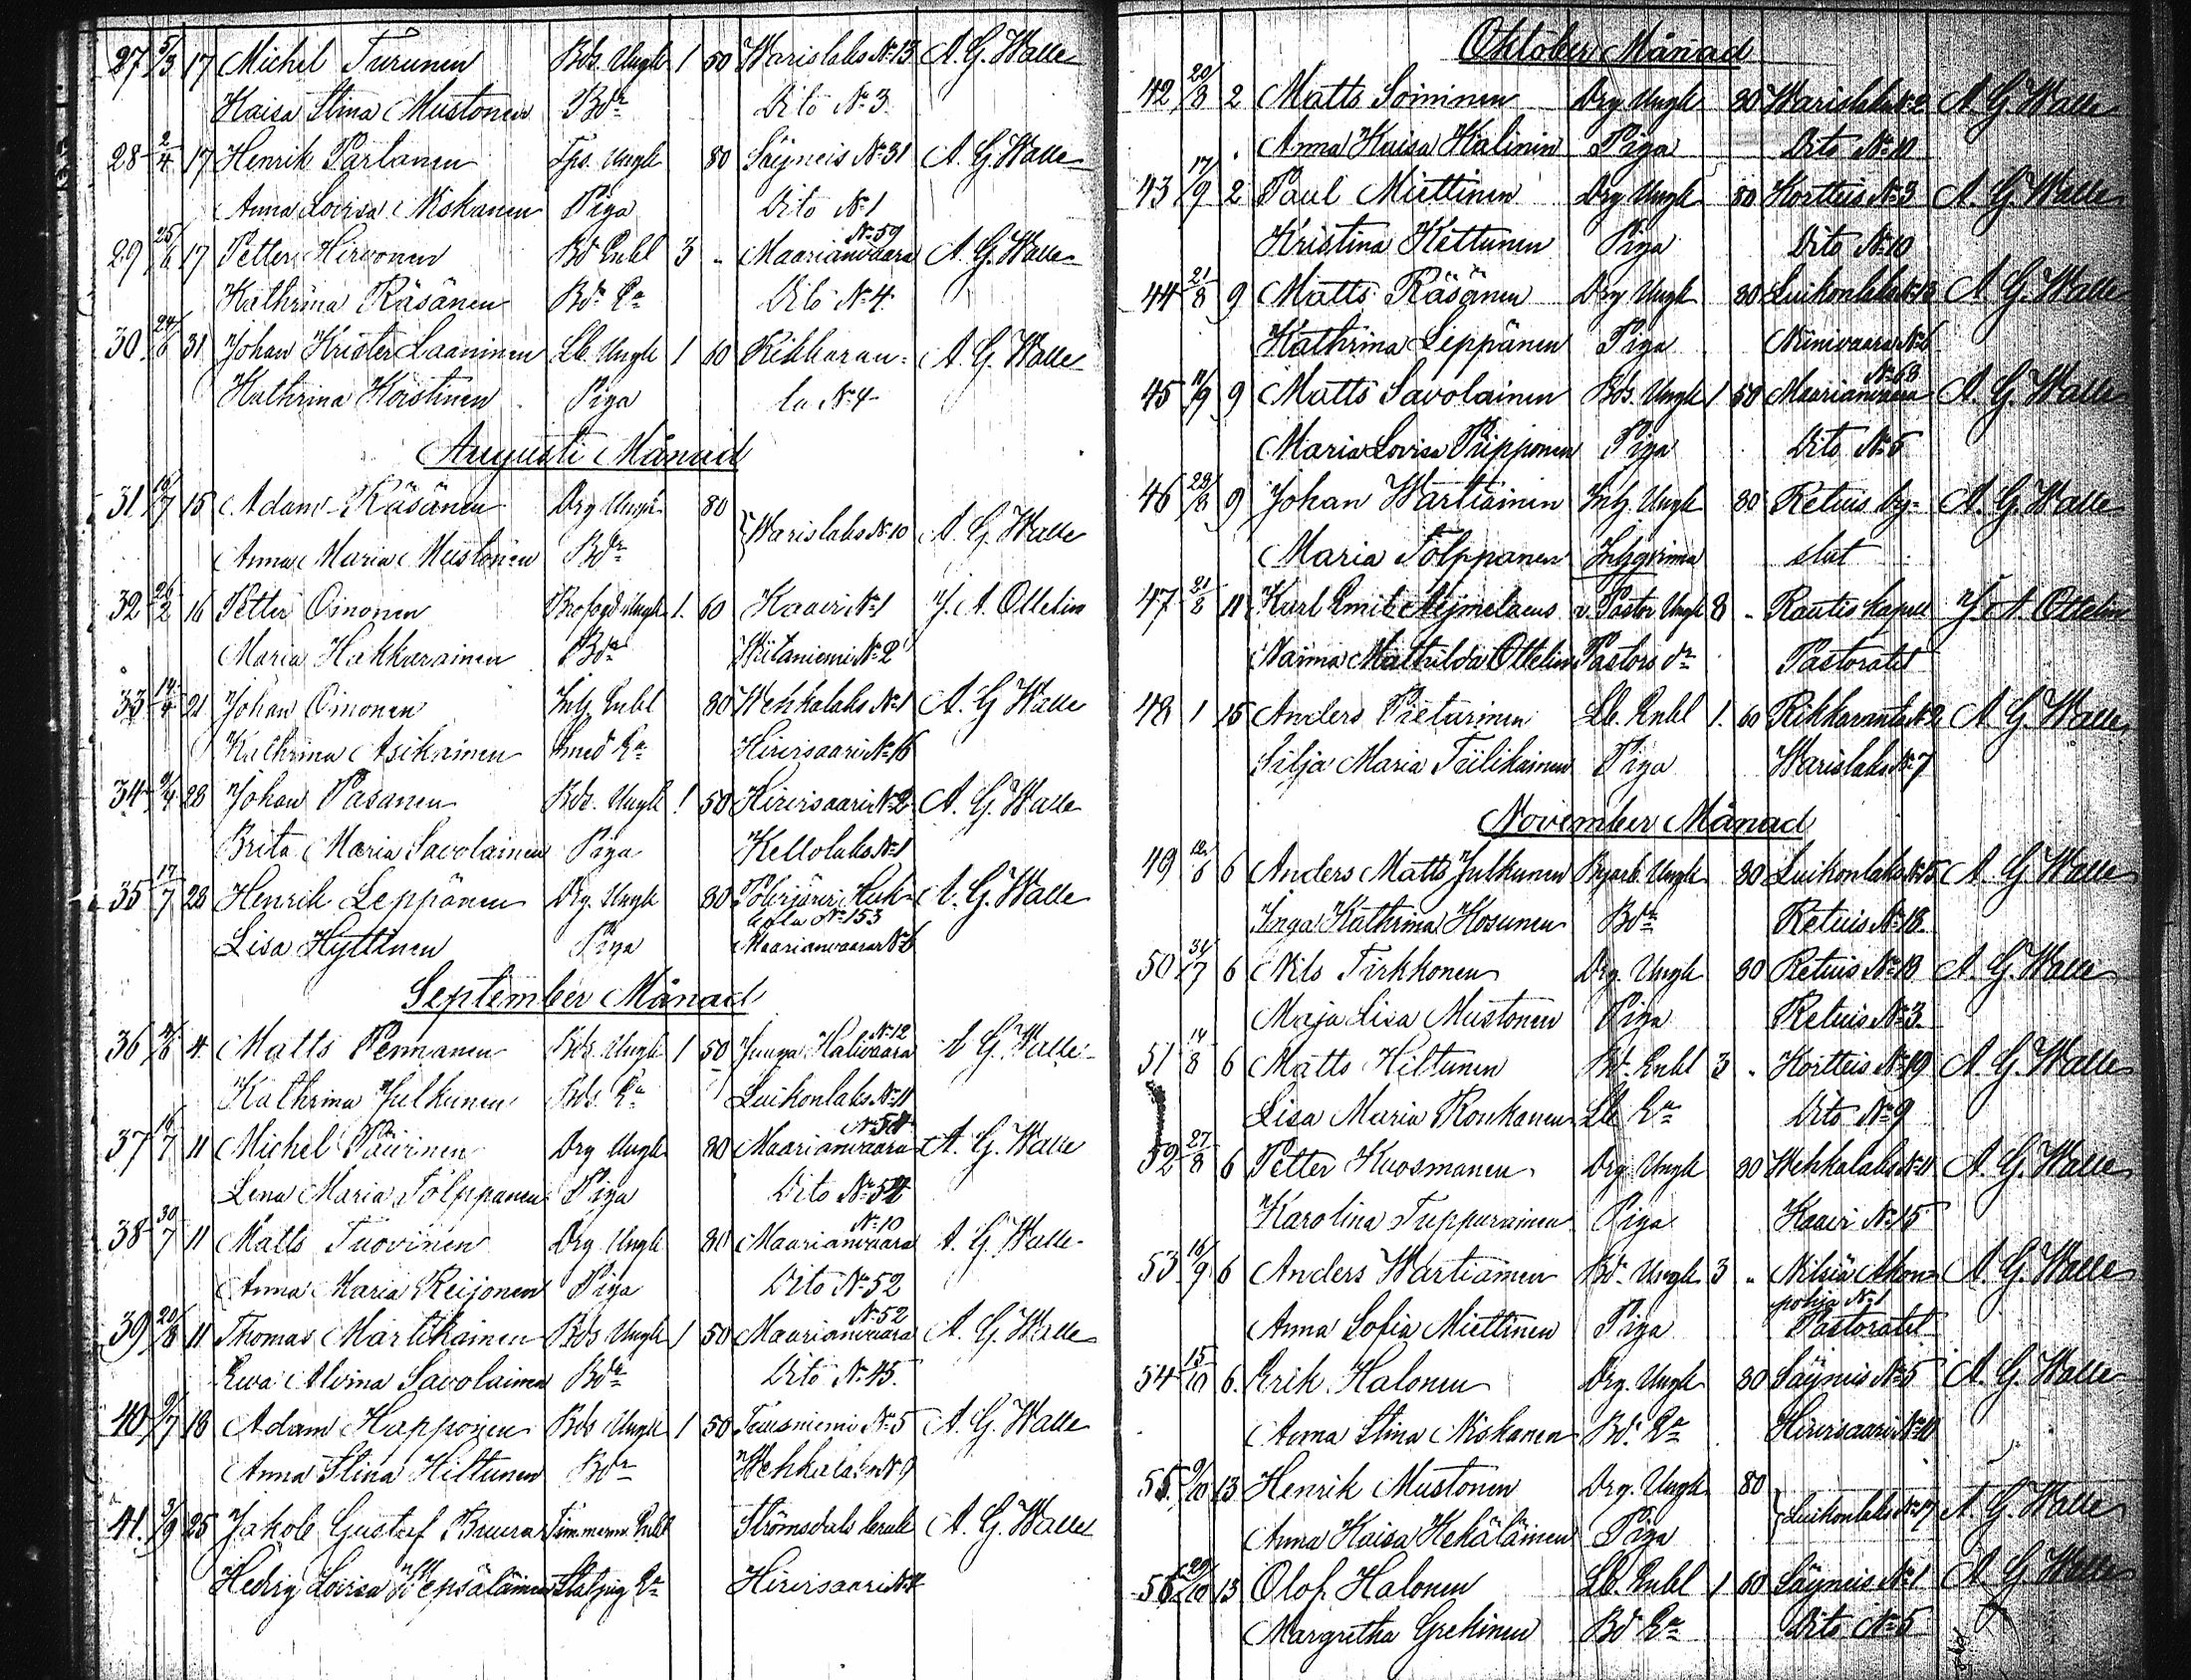 27 5/3 17 Michel Turunen Bds. Ungk 1 50 Warislaks No 13 A. G. Walle
Kaisa Stina Mustonen Bdr Dito No 3
28 2/4 17 Henrik Partanen Tps. Ungk 80 Säyneis No 31 A. G. Walle
Anna Lovisa Niskanen Piga Dito No 1
No 59
29 25/6 17 Petter Hirvonen Bd Enkl 3 " Maarianvaara A. G. Walle
Kathrina Räsänen Bds Ea Dito No 4
30 31 Johan Krister Laaninen Lb. Ungk 1 60 Rikkaran- A. G. Walle
Kathrina Koistinen Piga ta No 4
Augusti Månad
31 15 Adam Räsänen Drg Ungk 80
Warislaks No 10 A. G. Walle
Anna Maria Mustonen Bdr
32 26/2 16 Petter Oinonen Ungk 1. 60 Kaavi No 1 J. A. Ottelin
Maria Hakkarainen Bdr Niitaniemi No 2
33 14/4 21 Johan Oinonen Inh Enkl 80 Wehkalaks No 1 A. G Walle
Kathrina Asikainen Smed Ea Hirvisaari No 16
34 9/4 28 Johan Pasanen Bds. Ungk 1 50 Hirvisaari No 2 A. G. Walle
Brita Maria Savolainen Piga Kellolaks No 1
35 17/7 28 Henrik Leppänen Drg. Ungk 80 Polvijärvi A. G. Walle
No 153
Lisa Hyttinen Piga Maarianvaara No 6
September Månad
No 12
36 4 Matts Pennanen Bds. Ungk 1 50 Juuga Halivaara A G. Walle
Kathrina Julkunen Bds. Ea Luikonlaks No 11
No 54
37 16/7 11 Michel Päivinen Drg Ungk 80 Maarianvaara A. G. Walle
Lena Maria Tolppanen Piga Dito No 54
No 10
38 30/7 11 Matts Tuovinen Drg Ungk 80 Maarianvaara A. G. Walle
Anna Maria Reijonen Piga Dito No 52
No 52
39 20/8 11 Thomas Martikainen Bds Ungk 1 50 Maarianvaara A. G. Walle
Eva Alvina Savolainen Bdr Dito No 45.
40 9/7 18 Adam Happonen Bds Ungk 1 50 Tuusniemi No 5 A. G. Walle
Anna Stina Hiltunen Bdr Wehkalaks No 9
41. 3/9 25 Jakob Gustaf Timmerm. Enkl Strömsdals bruk A. G. Walle
Hedvig Lovisa Wepsäläinen Ea Hirvisaari No
Oktober Månad
42 20/8 2 Matts Soininen Drg Ungk 80 Warislaks No 2 A. G. Walle
Anna Kaisa Kalinin Piga Dito No 10
43 17/9 2 Paul Miettinen Drg Ungk 80 Kortteis No 3 A. G. Walle
Kristina Kettunen Piga Dito No 10
44 21/8 9 Matts Räsänen Drg Ungk 80 Luikonlaks No 13 A. G. Walle
Kathrina Leppänen Piga Niinivaara No 6
No 63
45 11/9 9 Matts Savolainen Bds. Ungk 1 50 Maarianvaara A. G. Walle
Maria Lovisa Piipponen Piga Dito No 5
46 28/8 9 Johan Wartiainen Inh. Ungk 80 Retuis by- A. G. Walle
Maria Tolppanen Inhyserina slut
47 21/8 11 Karl Emil Aejmelaeus v. Pastor Ungk 8 " Rautis kapell J. A. Ottelin
Naima Mathilda Ottelin Pastors dr Pastoratet
48 1 15 Anders Pietarinen Lb. Enkl 1. 60 Rikkaranta No 2 A. G. Walle
Silja Maria Tiilikainen Piga Warislaks No 7
November Månad
49 12/6 6 Anders Matts Julkunen Ungk 80 Luikonlaks No 15 A. G Walle
Inga Kathrina Kosunen Bdr Retuis No 18.
50 31/7 6 Nils Tirkkonen Drg. Ungk 80 Retuis No 13 A. G. Walle
Maja Lisa Mustonen Piga Retuis No 3.
51 14/8 6 Matts Hiltunen Bd. Enkl 3 " Kortteis No 19 A. G. Walle
Lisa Maria Ronkanen Lb Ea Dito No 9
52 27/8 6 Petter Kuosmanen Drg. Ungk 80 Wehkalaks No 11 A. G. Walle
Karolina Tuppurainen Piga Kaavi No 15
53 16/9 6 Anders Wartiainen Bd. Ungk 3 " Nilsiä Akon- A. G. Walle
pohja No 1
Anna Sofia Miettinen Piga Pastoratet
54 15/10 6. Erik Halonen Drg. Ungk 80 Säyneis No 5 A. G. Walle
Anna Stina Niskanen Bd. Ea Hirvisaari No 10
55 9/10 13 Henrik Mustonen Drg. Ungk 80
Luikonlaks No 17 A. G. Walle
Anna Kaisa Kehäläinen Piga
56 29/10 13 Olof Halonen Lb. Enkl 1 60 Säyneis No 1 A G Walle
Margretha Grekinen Bd Ea Dito No 5